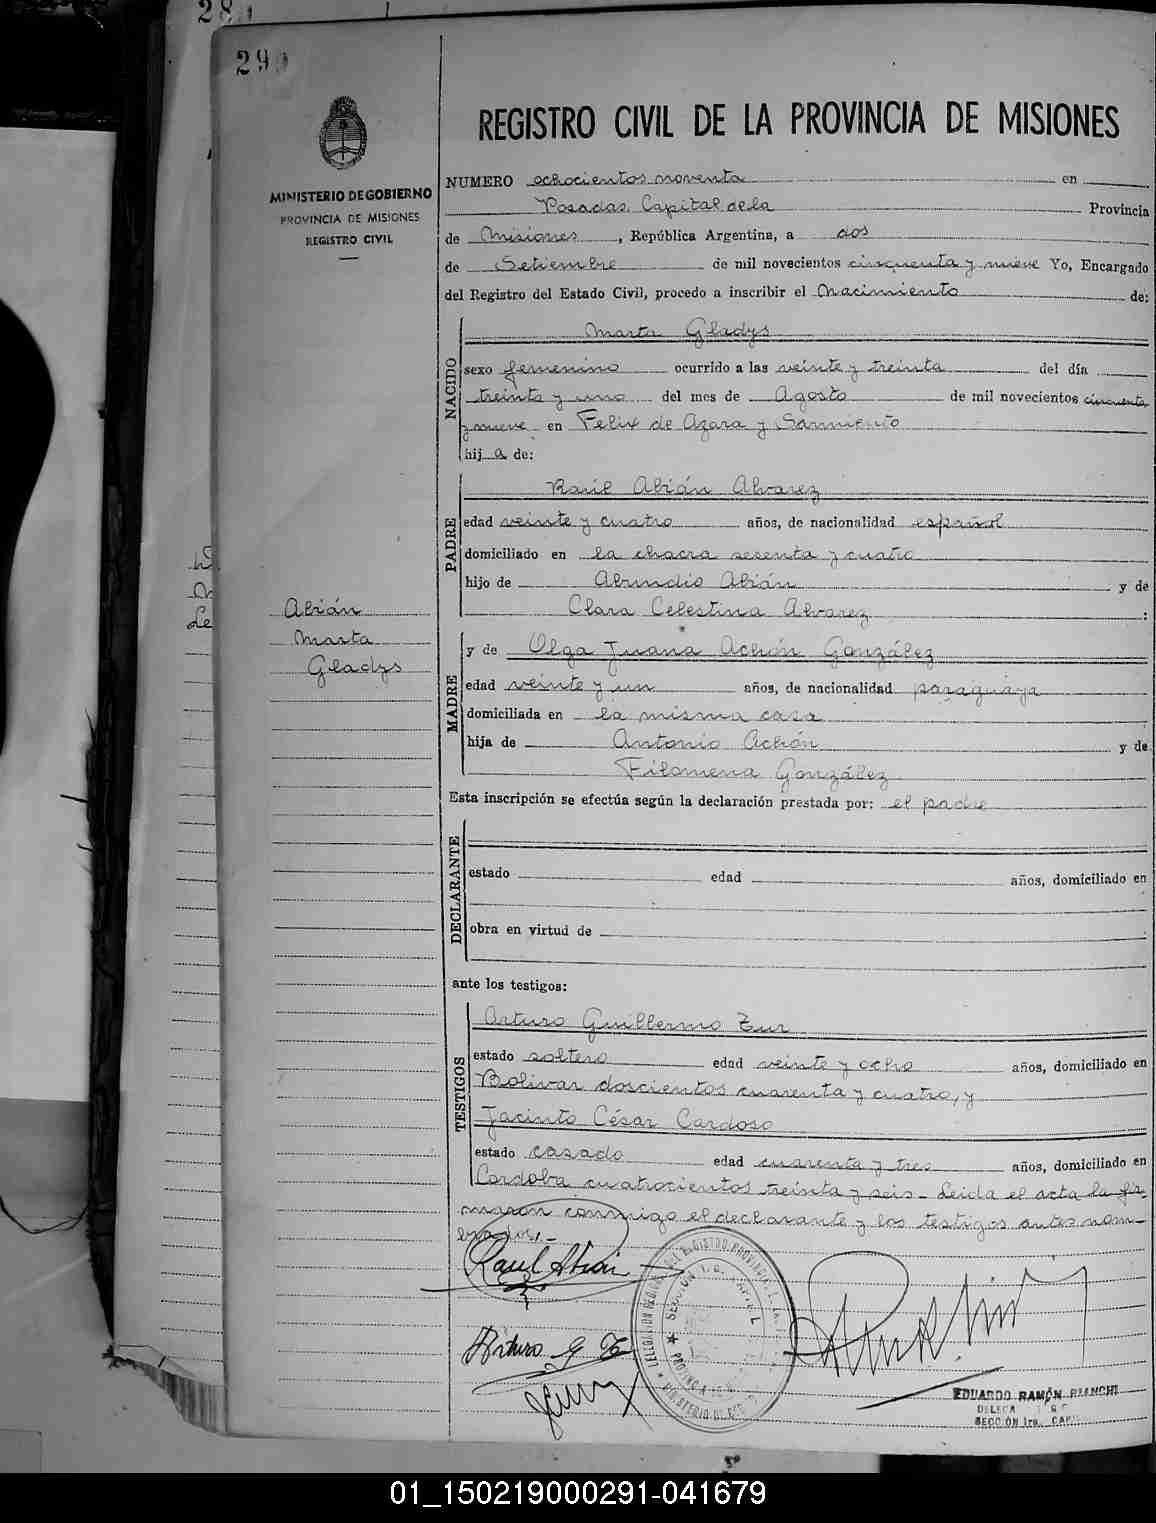 28
290
MINISTERIO DE GOBIERNO
PROVINCIA DE MISIONES
REGISTRO CIVIL
REGISTRO CIVIL DE LA PROVINCIA DE MISIONES
NUMERO ochocientos noventa en
Posadas, Capital de la Provincia
de Misiones, República Argentina, a dos
de Setiembre de mil novecientos cincuenta y nueve Yo, Encargado
del Registro del Estado Civil, procedo a inscribir el Nacimiento de:
NACIDO
Marta Gladys
sexo femenino ocurrido a las veinte y treinta del día
treinta y uno del mes de Agosto de mil novecientos cincuenta
y nueve en Felix de Azara y Sarmiento
hija de:
PADRE
Raúl Abián Alvarez
edad veinte y cuatro años, de nacionalidad español
domiciliado en la chacra sesenta y cuatro
hijo de Abundio Abián y de
Clara Celestina Alvarez :
Abián
Marta
Gladys
MADRE
y de Olga Juana Achón González
edad veinte y un años, de nacionalidad paraguaya
domiciliada en la misma casa
hija de Antonio Achón y de
Filomena González
Esta inscripción se efectúa según la declaración prestada por: el padre
DECLARANTE
estado edad años, domiciliado en
obra en virtud de
ante los testigos:
TESTIGOS
Arturo Guillermo Zur
estado soltero edad veinte y ocho años, domiciliado en
Bolivar doscientos cuarenta y cuatro, y
Jacinto César Cardoso
estado casado edad cuarenta y tres años, domiciliado en
Cordoba cuatrocientos treinta y seis - Leida el acta la fir
maron conmigo el declarante y los testigos antes nom-
brados.-
Raul Abian
Arturo G
EDUARDO RAMÓN BIANCHI
SECCIÓN 1ra. CAP
01_150219000291-041679